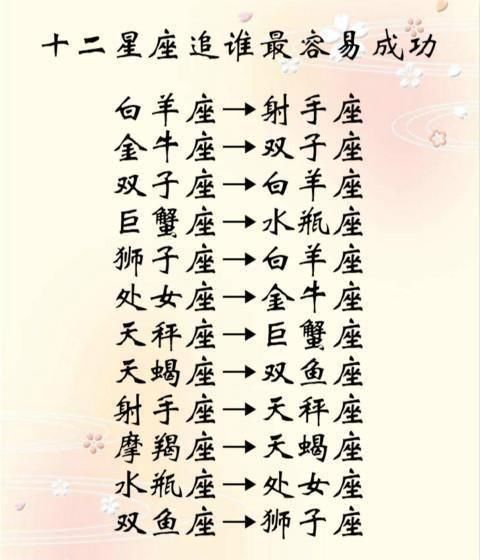 十二星座追谁最容易成功
白羊座→射手座
金牛座→双子座
双子座→白羊座
巨蟹座→水瓶座
狮子座→白羊座
处女座→金牛座
天秤座→巨蟹座
天蝎座→双鱼座
射手座→天秤座
摩羯座→天蝎座
水瓶座→处女座
双鱼座→狮子座